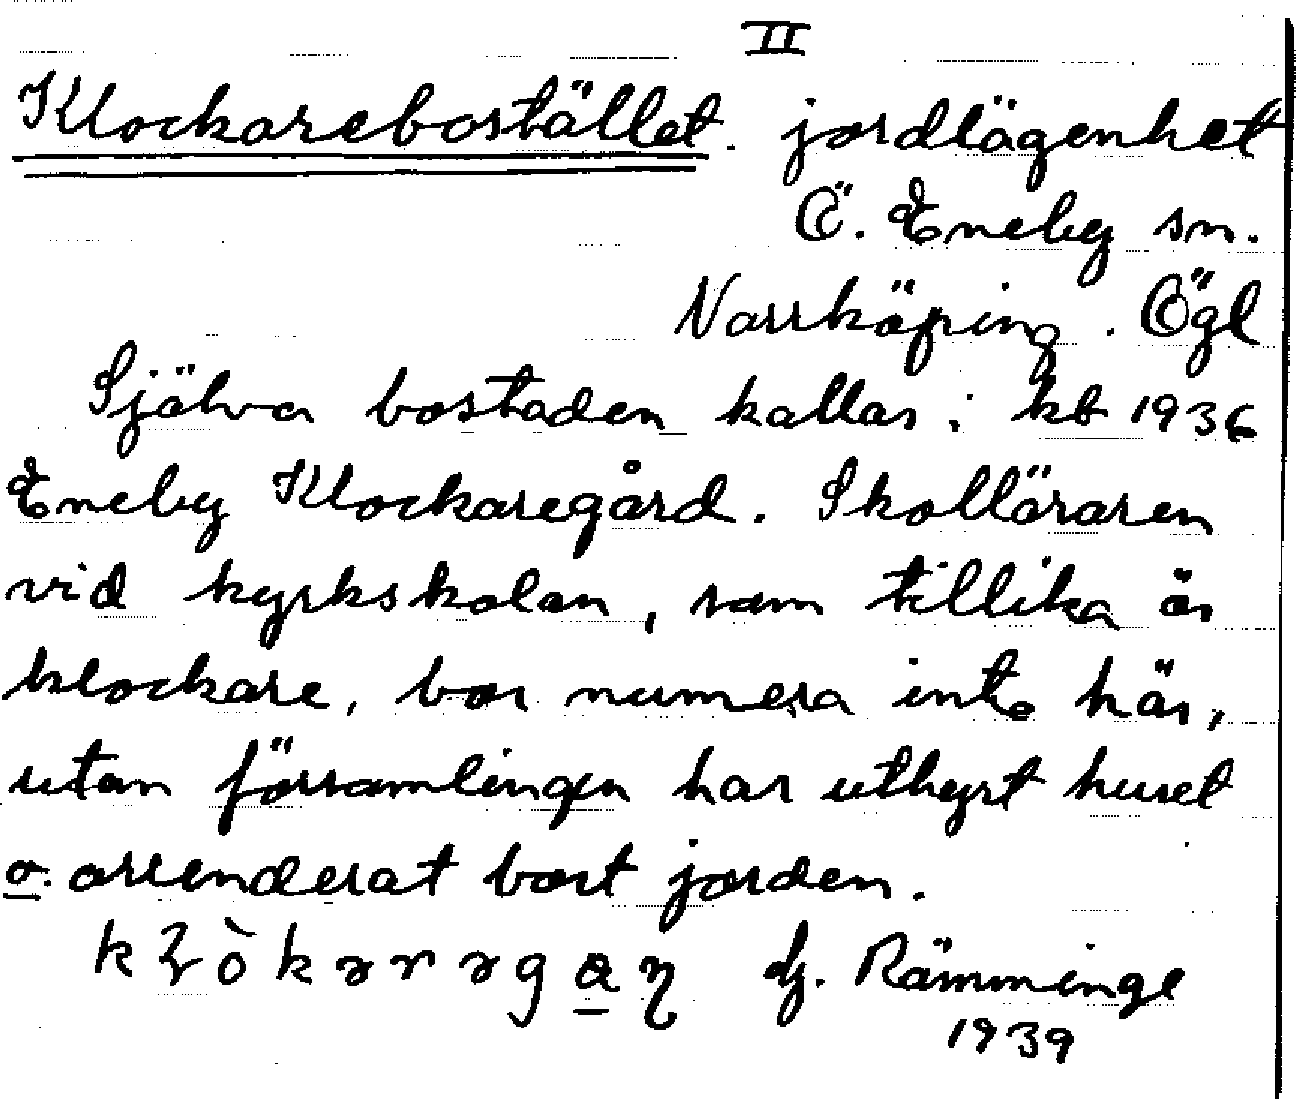 II
Klockarebostället. jordlägenhet
Ö. Eneby sn.
Norrköping. Ögl
Själva bostaden kallas i kb 1936
Eneby Klockaregård. Skolläraren
vid kyrkskolan, som tillika är
klockare, bor numera inte här,
utan församlingen har uthyrt huset
o. arrenderat bort jorden.
1939